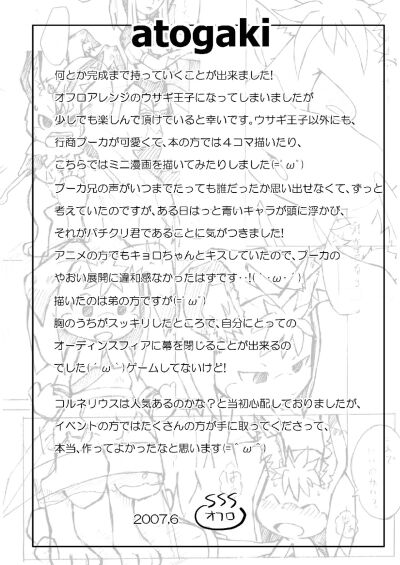 atogaki
何とか完成まで持っていくことが出来ました!
オフロアレンジのウサギ王子になってしまいましたが
少しでも楽しんで頂けていると幸いです。ウサギ王子以外にも、
行商プーカが可愛くて、本の方では４コマ描いたり、
こちらではミニ漫画を描いてみたりしました(=ﾟωﾟ)
プーカ兄の声がいつまでたっても誰だったか思い出せなくて、ずっと
考えていたのですが、ある日はっと青いキャラが頭に浮かび、
それがパチクリ君であることに気がつきました!
アニメの方でもキョロちゃんとキスしていたので、プーカの
やおい展開に違和感なかったはずです‥!(´･ω･`)
描いたのは弟の方ですが(=ﾟωﾟ)
胸のうちがスッキリしたところで、自分にとっての
オーディンスフィアに幕を閉じることが出来るの
でした(´ω`)ゲームしてないけど!
コルネリウスは人気あるのかな?と当初心配しておりましたが、
イベントの方ではたくさんの方が手に取ってくださって、
本当、作ってよかったなと思います(=´ω`)
2007,6
SSS
オフロ